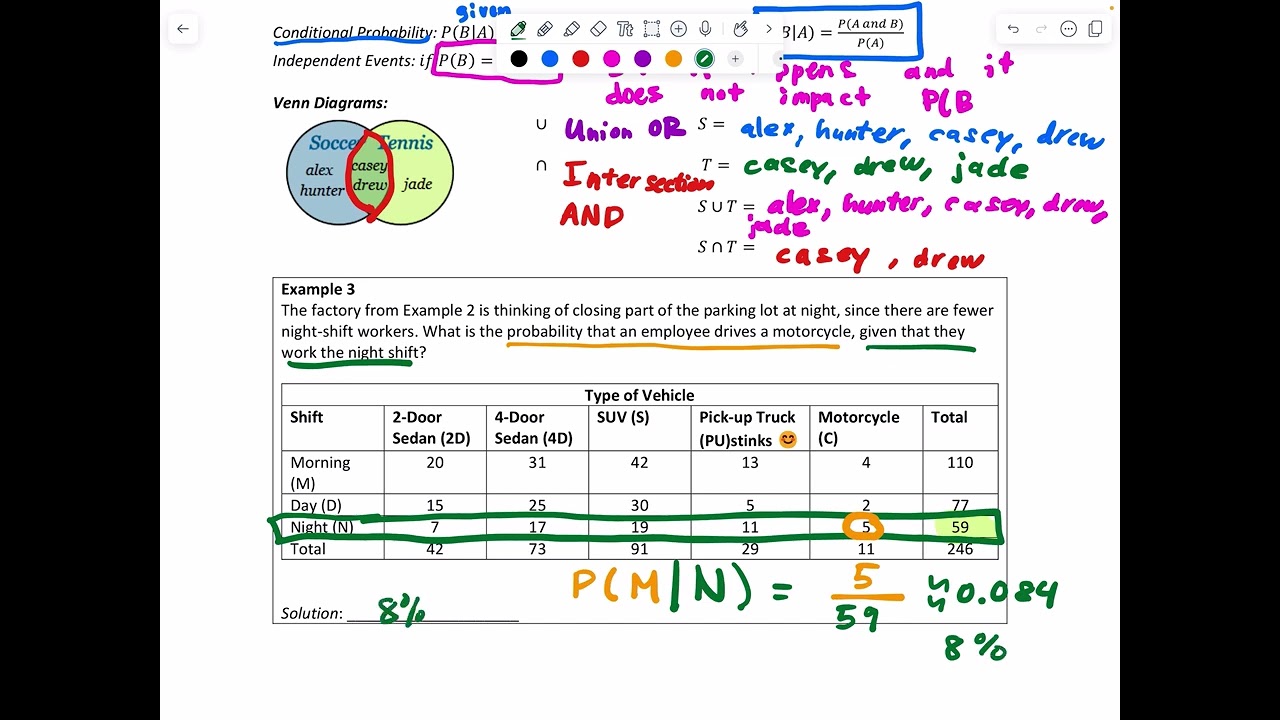 given
Conditional Probability: P(B|A) B|A) = P(A and B) / P(A)
Independent Events: if P(B) = ppens and it
does not impact P(B
Venn Diagrams:
Soccer Tennis
alex hunter casey drew jade
∪ Union OR
∩ Intersection
AND
S = alex, hunter, casey, drew
T = casey, drew, jade
S ∪ T = alex, hunter, casey, drew,
jade
S ∩ T = casey, drew
Example 3
The factory from Example 2 is thinking of closing part of the parking lot at night, since there are fewer
night-shift workers. What is the probability that an employee drives a motorcycle, given that they
work the night shift?
Type of Vehicle
Shift 2-Door Sedan (2D) 4-Door Sedan (4D) SUV (S) Pick-up Truck (PU)stinks 😊 Motorcycle (C) Total
Morning (M) 20 31 42 13 4 110
Day (D) 15 25 30 5 2 77
Night (N) 7 17 19 11 5 59
Total 42 73 91 29 11 246
P(M|N) = 5/59 ≈ 0.084
≈ 8%
Solution: 8%